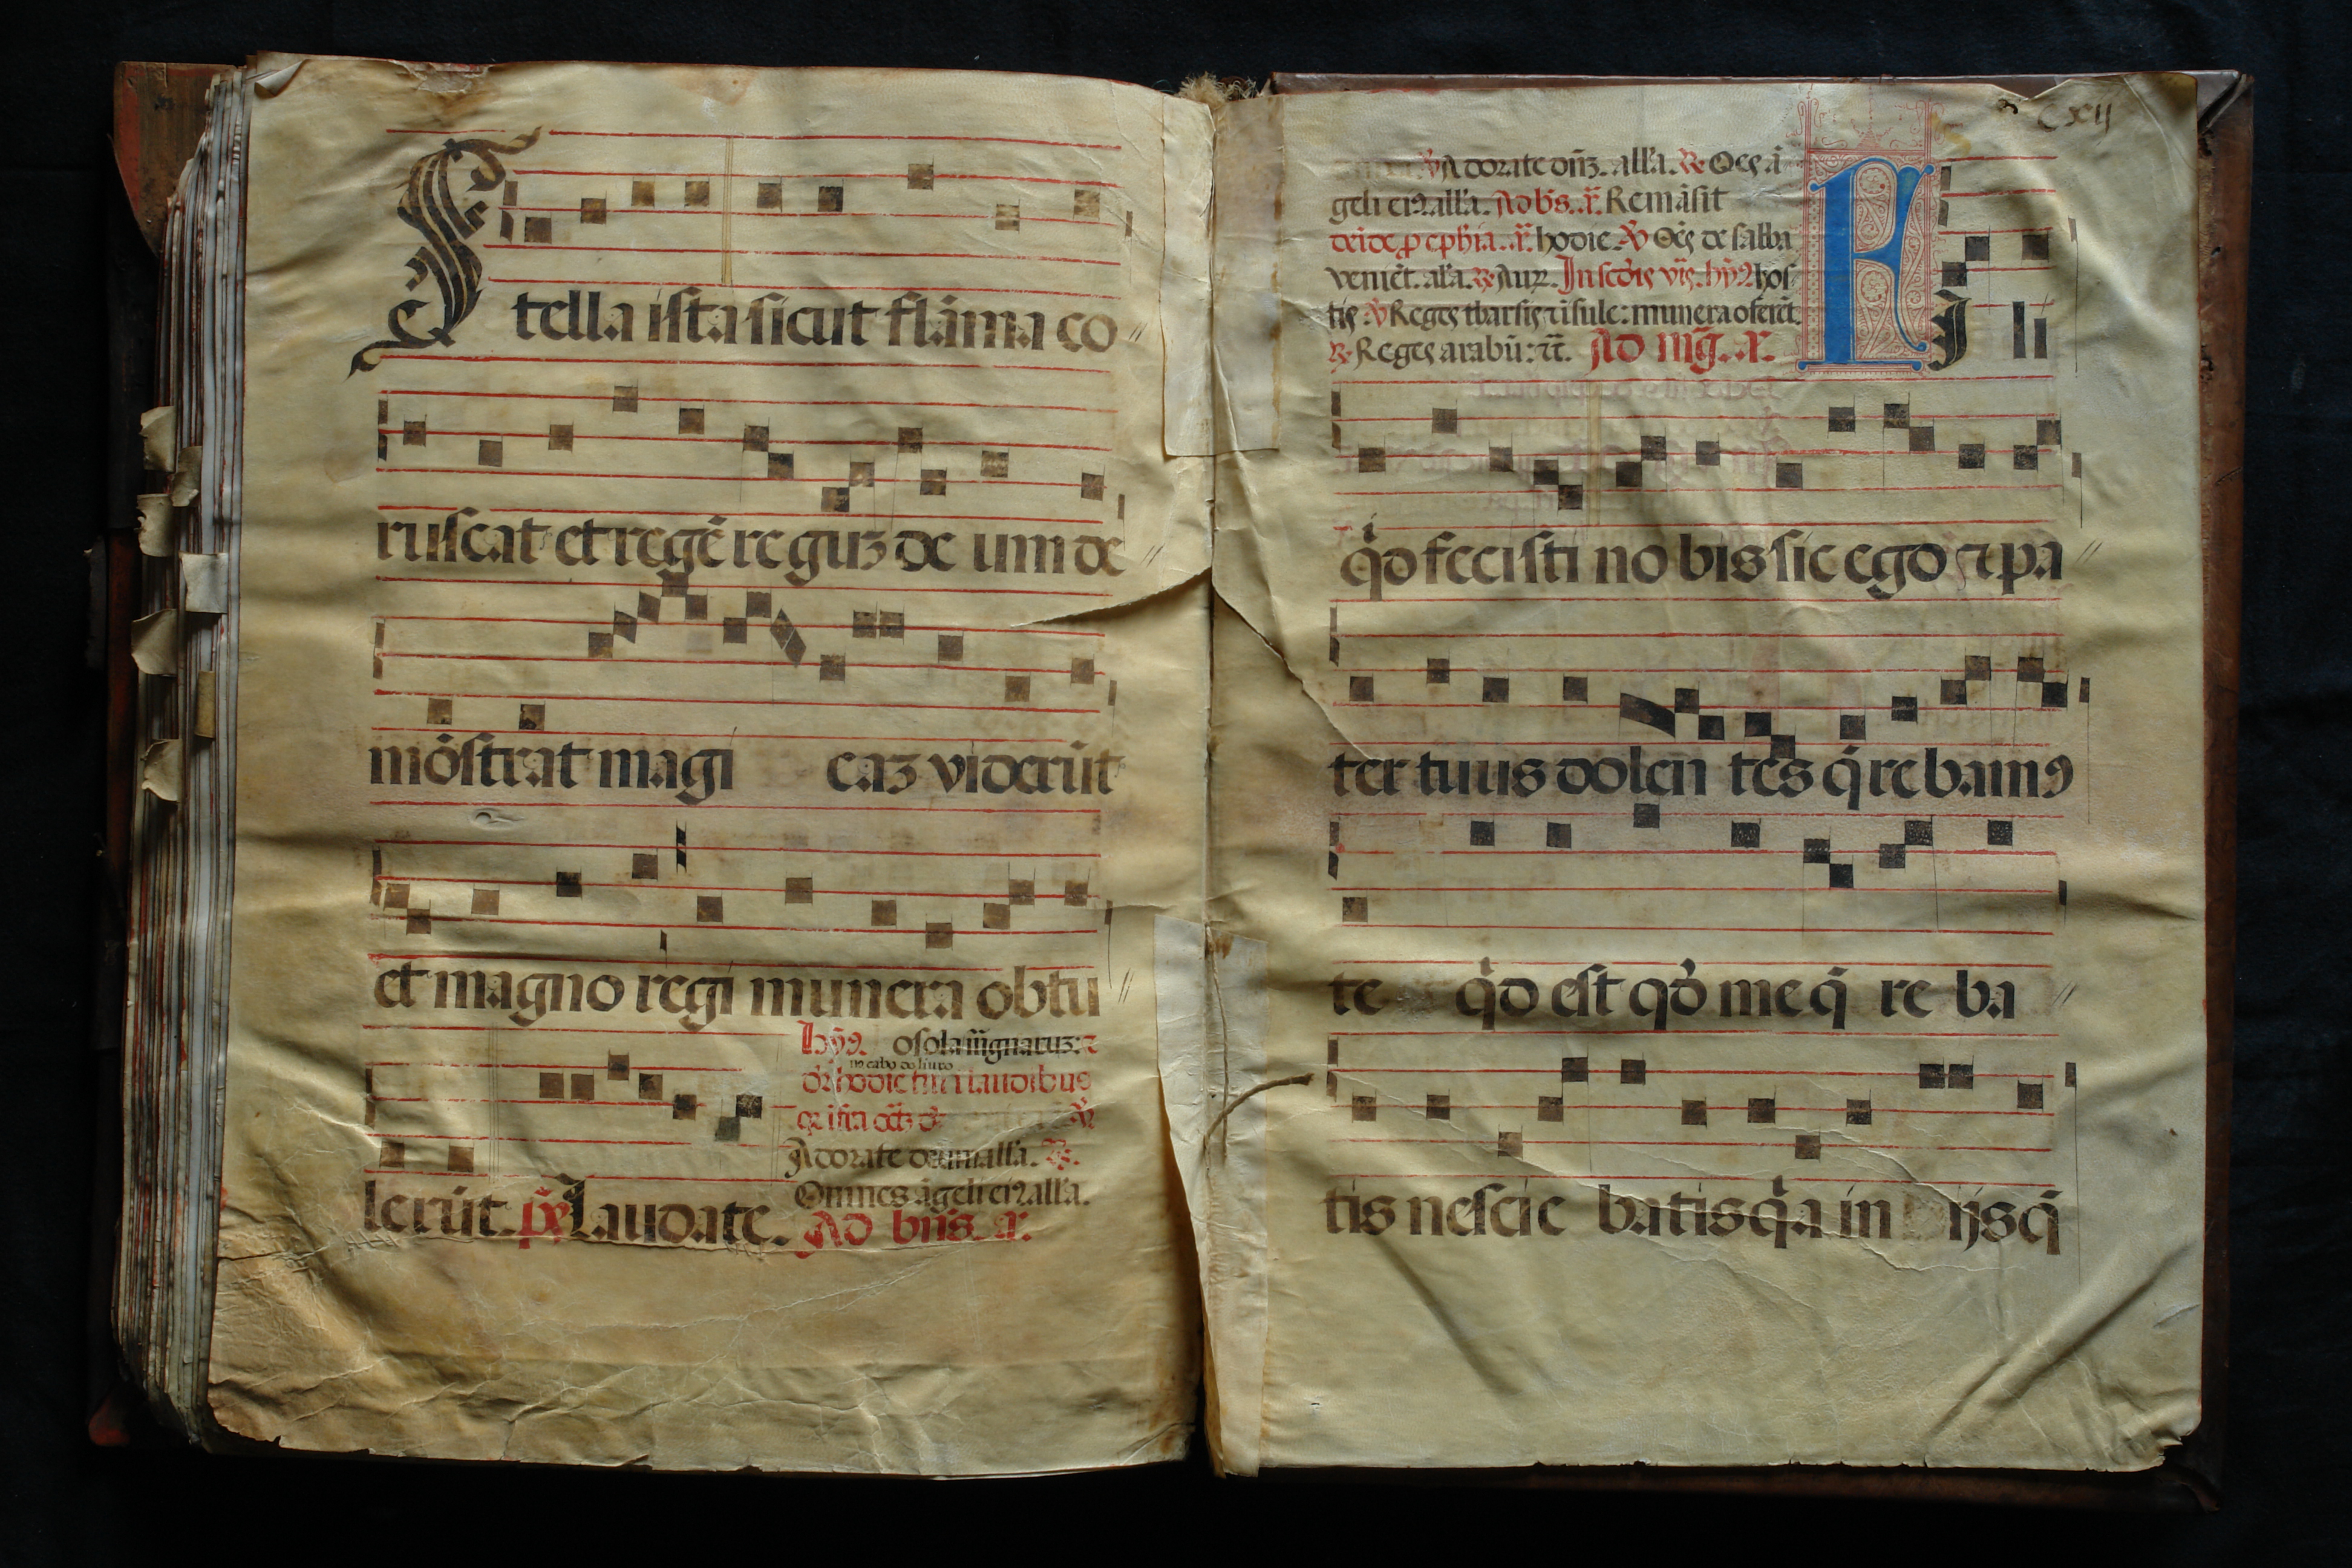 Stella ista sicut flāma co
ruscat et regē reguꝫ de um de
mōstrat magi eaꝫ viderūt
et magno regi munera obtu
lerūt. p̄s Laudate.
hỹ9. o sola māgnatuꝫ: ⁊
no cabo do liuro
hodie laudibus
Adorate deum all'a. ℟.
Omnes āgeli ei9 all'a.
Ad bn̄s. a.
cxij
℣ Adorate dn̄ꝫ. all'a. ℟ Oēs ā
geli ei9 all'a. Ad bs. ā. Remāsit
deīde ꝓ ephia. ā. hodie ℣ Oēs de sabba
veniēt. al'a. ℟ Aurꝫ. In scd̄is vis̄. hỹ9 hos
tis ℣ Reges tharsis ⁊ īsule: munera oferēt.
℟ Reges arabū: ⁊c̄. Ad mḡ. ā.
Fili
qͥd fecisti no bis sic ego ⁊ pa
ter tuus dolen tes q̄rebam9
te qͥd est qď me q̄ re ba
tis nescie batis qͥa in ijs q̄